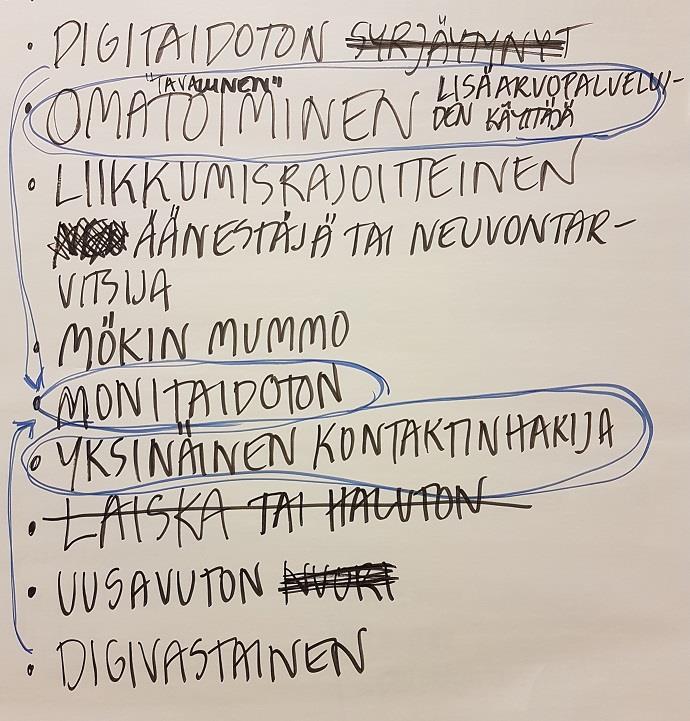 • DIGITAIDOTON SYRJÄYTYNYT
"TAVALLINEN"
• OMATOIMINEN LISÄARVOPALVELUI-
DEN KÄYTTÄJÄ
• LIIKKUMISRAJOITTEINEN
ÄÄNESTÄJÄ TAI NEUVONTAR-
VITSIJA
• MÖKIN MUMMO
• MONITAIDOTON
• YKSINÄINEN KONTAKTINHAKIJA
• LAISKA TAI HALUTON
• UUSAVUTON NUORI
• DIGIVASTAINEN